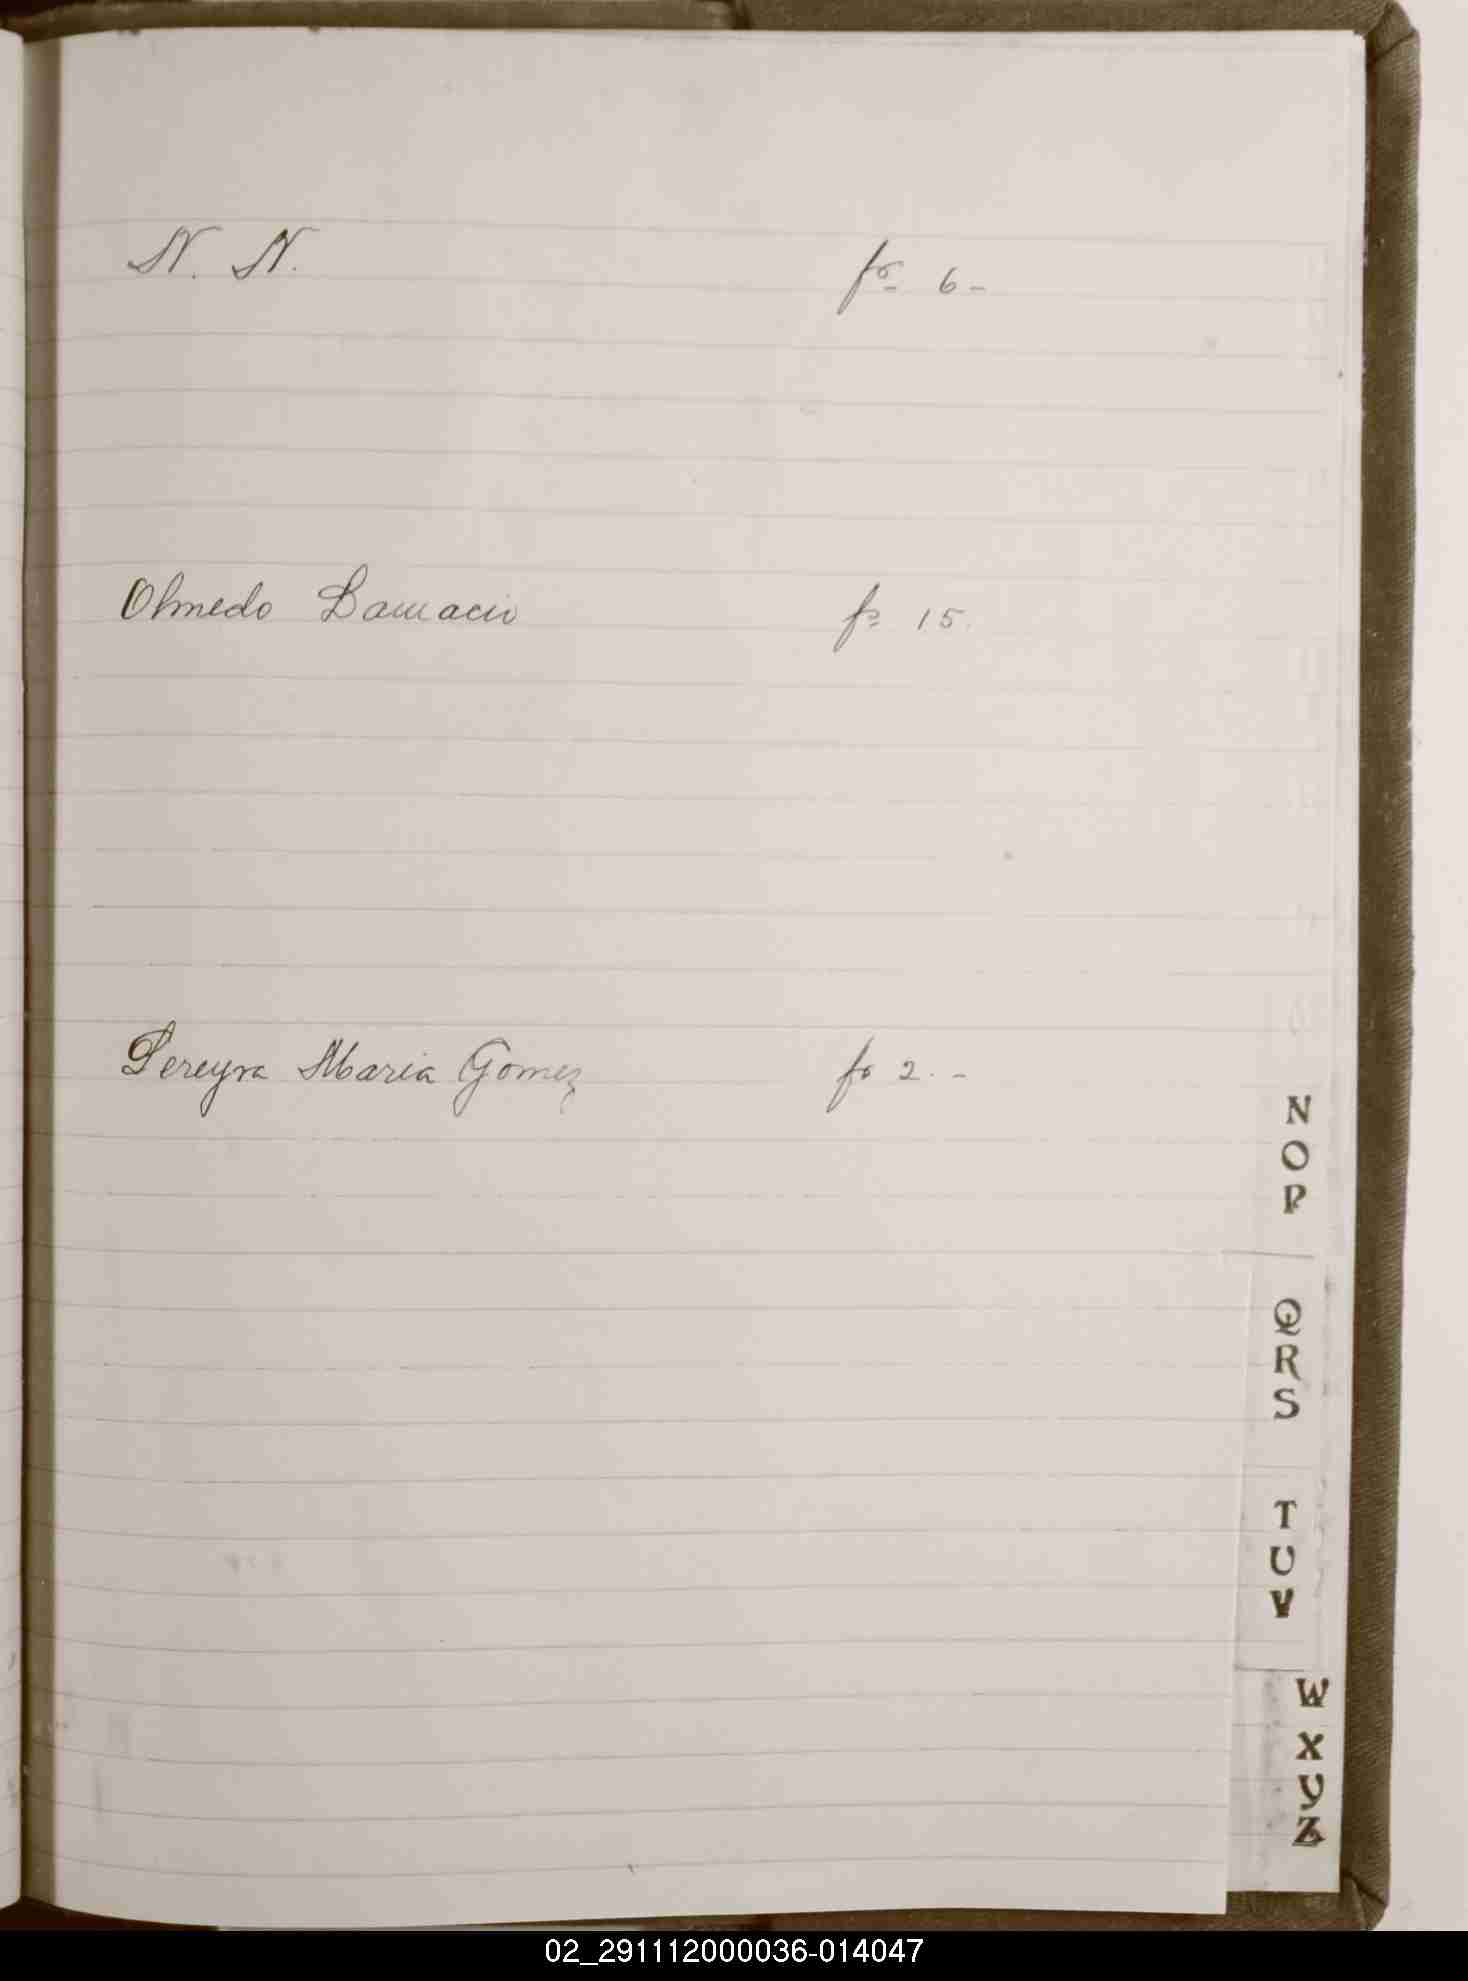 N. N. fo 6 -
Olmedo Damacio fo 15.
Pereyra Maria Gomez fo 2. -
N
O
P
Q
R
S
T
U
V
W
X
Y
Z
02_291112000036-014047